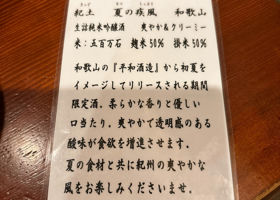 きっど なつ はやて
紀土 夏の疾風 和歌山
生詰純米吟醸酒 爽やか&クリーミー
米:五百万石 麹米50% 掛米50%
和歌山の『平和酒造』から初夏を
イメージしてリリースされる期間
限定酒。柔らかな香りと優しい
口当たり。爽やかで透明感のある
酸味が食欲を増進させます。
夏の食材と共に紀州の爽やかな
風をお楽しみくださいませ。